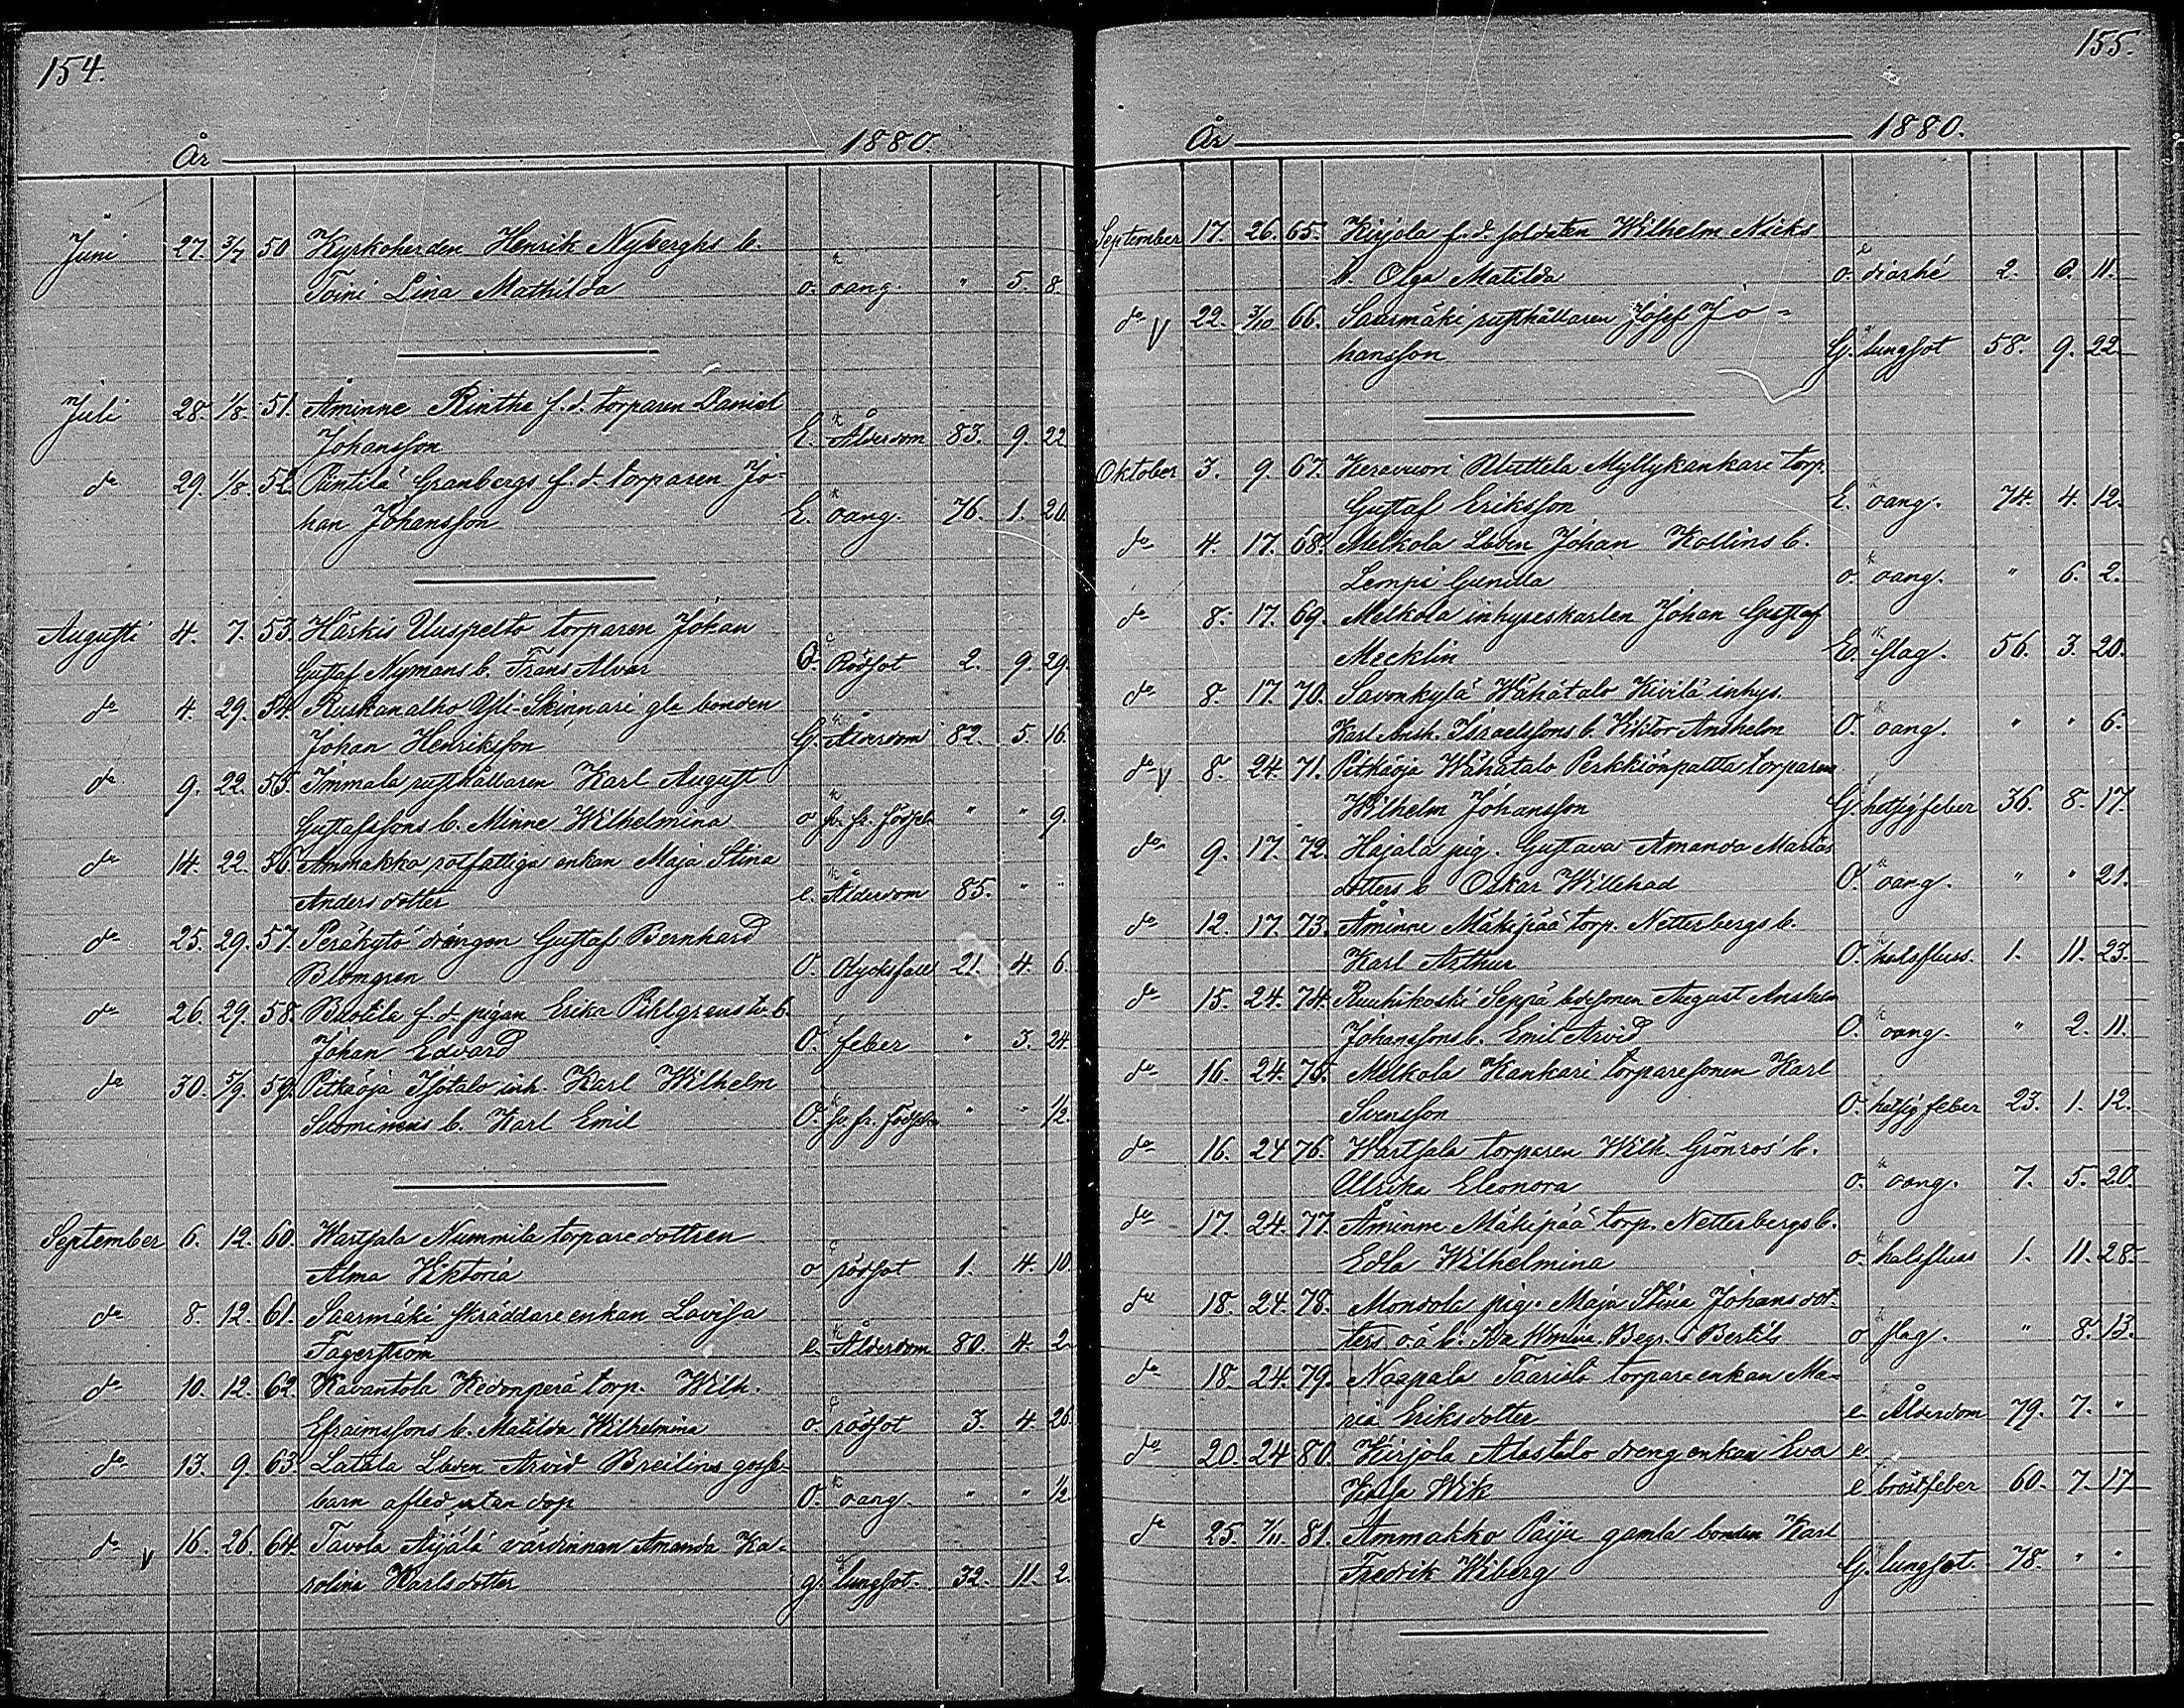 154.
År 1880.
Juni 27. 3/7 50 Kyrkoherden Henrik Nyberghs b.
Toini Lina Mathilda o. k oang. " 5. 8.
Juli 28. 1/8. 51. Åminne Rintha f.d. torparen Daniel
Johansson E. k Ålderdom 83. 9. 22
do 29. 1/8. 52. Pentilä Granbergs f.d. torparen Jo-
han Johansson E. k oang. 76. 1. 20.
Augusti 4. 7. 53. Härkis Uuspelto torparen Johan
Gustaf Nymans b. Frans Alvar O. c Rödsot 2. 9. 29.
do 4. 29. 54. Ruskanalho Yli-Skinnari gla bonden
Johan Henriksson G. k Ålderdom 82. 5. 16.
do 9. 22. 55. Immala rusthållaren Karl August
Gustafssons b. Minne Wilhelmina o k sv. fr. födseln " " 9.
do 14. 22. 56. Ammakko rotfattiga enkan Maja Stina
Andersdotter e. k Ålderdom 85. " "
do 25. 29. 57. Peräkytö drängen Gustaf Bernhard
Blomgren O. Olycksfall 21. 4. 6.
do 26. 29. 58. Buotila f.d. pigan Erika Pihlgrens b.
Johan Edvard O. feber " 3. 24.
do 30. 5/9. 59. Pitkäoja Isotalo inh. Karl Wilhelm
Suominens b. Karl Emil O. k sv. fr. födseln " " 1/2.
September 6. 12. 60. Wartsala Nummila torparedottren
Alma Viktoria o c rödsot 1. 4. 10.
do 8. 12. 61. Saarmäki skräddareenkan Lovisa
Fagerström e. k Ålderdom 80. 4. 2.
do 10. 12. 62. Kavantola Kedonperä torp. Wilh.
Efraimssons b. Matilda Wilhelmina o. c rödsot 3. 4. 26.
do 13. 9. 63. Latala Lbden Arvid Breilins gosse-
barn afled utan dop O. k oang. " " 1/2
do v 16. 26. 64. Tavola Äijälä värdinnan Amanda Ka-
rolina Karlsdotter g. lungsot. 32. 11. 2.
155.
År 1880.
September 17. 26. 65. Kirjola f.d. soldaten Wilhelm Nicks
b. Olga Matilda o. diarhé 2. 6. 11.
do v 22. 3/10 66. Saarmäki rusthållaren Josef Jo-
hansson G. lungsot 58. 9. 22.
Oktober 3. 9. 67. Keravuori Uluttela Myllykankare torp.
Gustaf Eriksson E. k oang. 74. 4. 12.
do 4. 17. 68. Melkola Lbden Johan Kollins b.
Lempi Gunilla o. k oang. " 6. 2.
do 8. 17. 69. Melkola inhyseskarlen Johan Gustaf
Mecklin E. k slag. 56. 3. 20.
do 8. 17. 70. Savonkylä Wähätalo Kivilä inhys.
Karl Ansh. Israelssons b. Viktor Anshelm O. k oang. " " 6.
do v 8. 24. 71. Pitkäoja Wähätalo Perkkiönpalta torparen
Wilhelm Johansson G. hetsigfeber 36. 8. 17.
do 9. 17. 72. Hajala pig. Gustava Amanda Marias
dotters b Oskar Willehad O. k oang. " " 21.
do 12. 17. 73. Åminne Mäkipää torp. Netterbergs b.
Karl Arthur O. halsfluss. 1. 11. 23.
do 15. 24. 74. Ruuhikoski Seppä bdesonen August Anshelm
Johanssons b. Emil Arvid O. k oang. " 2. 11.
do 16. 24. 75. Melkola Kankari torparesonen Karl
Svensson O. hetsig feber 23. 1. 12.
do 16. 24 76. Wartsala torparen Wilh. Grönros' b.
Ulrika Eleonora o. k oang. 7. 5. 20.
do 17. 24. 77. Åminne Mäkipää torp. Netterbergs b.
Edla Wilhelmina o. halsfluss 1. 11. 28.
do 18. 24. 78. Mondola pig. Maja Stina Johansdot-
ters o.ä. b. Ida Wmina. Begr. i Bertils o k slag. " 8. 13.
do 18. 24. 79. Naapala Taarila torpareenkan Ma-
ria Eriksdotter e. k Ålderdom 79. 7. "
do 20. 24. 80. Kirjola Alastalo drengenkan Eva e.
Kajsa Wik e bröstfeber 60. 7. 17
do 25. 7/11. 81. Ammakko Paiju gamla bonden Karl
Fredrik Wiberg G. lungsot. 78. " "